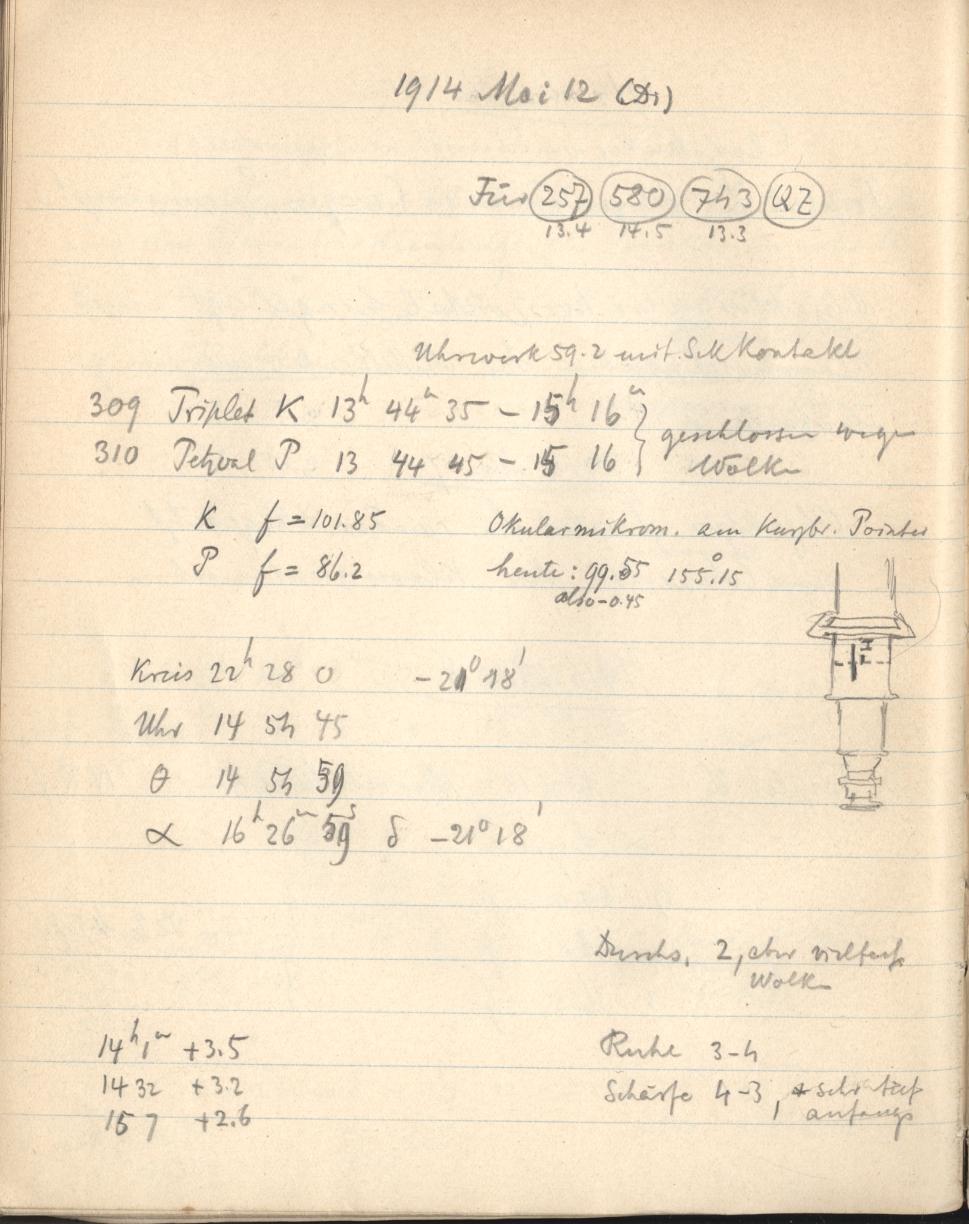 1914 Mai 12 (Di)
Für 257 580 743 QZ
13.4 14.5 13.3
Uhrwerk 59.2 mit Sek Kontakt
309 Triplet K 13h 44m 35 – 15h 16m
geschlossen wegen
310 Petzval P 13 44 45 – 15 16
Wolken
K f = 101.85 Okularmikrom. am Kurzbr. Pointer
P f = 86.2 heute: 99.55 155°.15
also -0.45
Kreis 22h 28 0 -21° 18'
Uhr 14 54 45
θ 14 54 59
α 16h 26m 59s δ -21° 18'
Durchs. 2, aber vielfach
Wolken
14h 1m +3.5 Ruhe 3-4
14 32 +3.2 Schärfe 4-3, * sehr tief
15 7 +2.6 anfangs